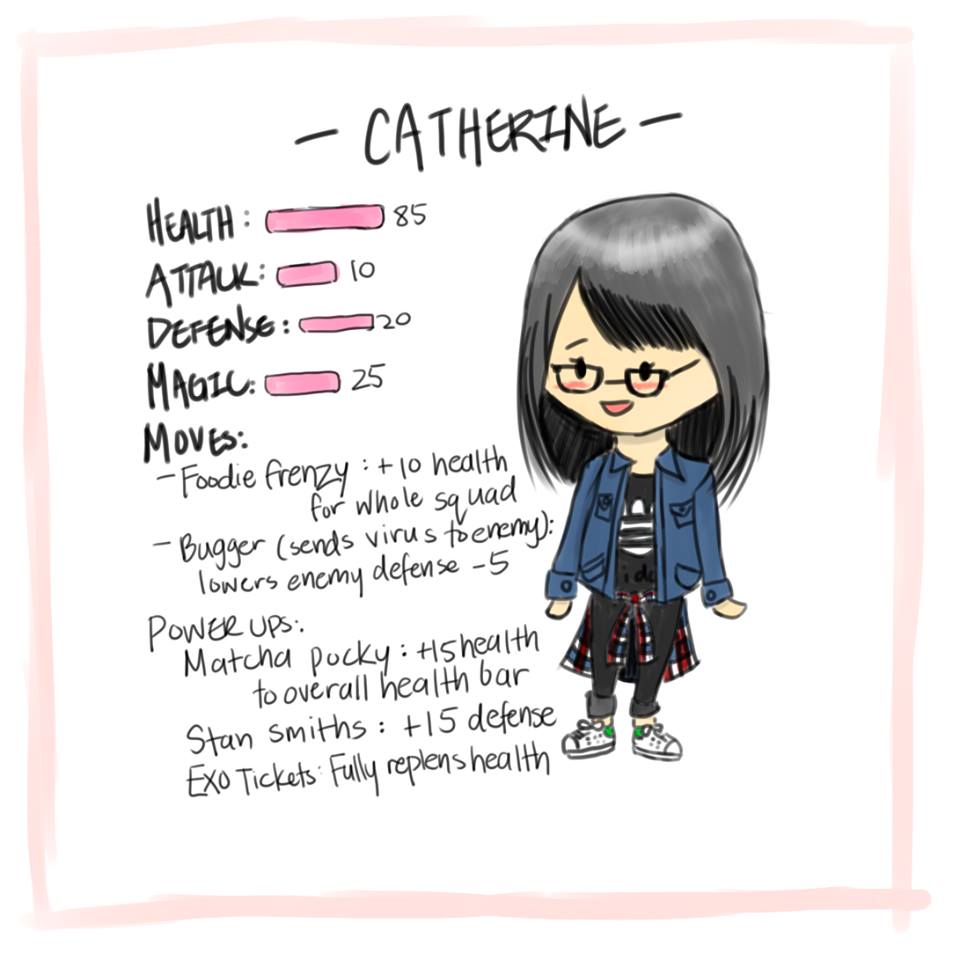 - CATHERINE -
HEALTH: 85
ATTACK: 10
DEFENSE: 20
MAGIC: 25
MOVES:
- Foodie frenzy: +10 health
for whole squad
- Bugger (sends virus to enemy):
lowers enemy defense -5
POWER UPS:
Matcha pocky: +15 health
to overall health bar
Stan smiths: +15 defense
EXO Tickets: Fully replens health